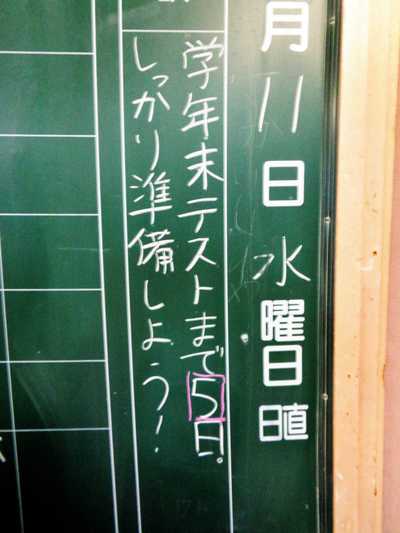 月11日水曜日
日直
学年末テストまで5日.
しっかり準備しよう!